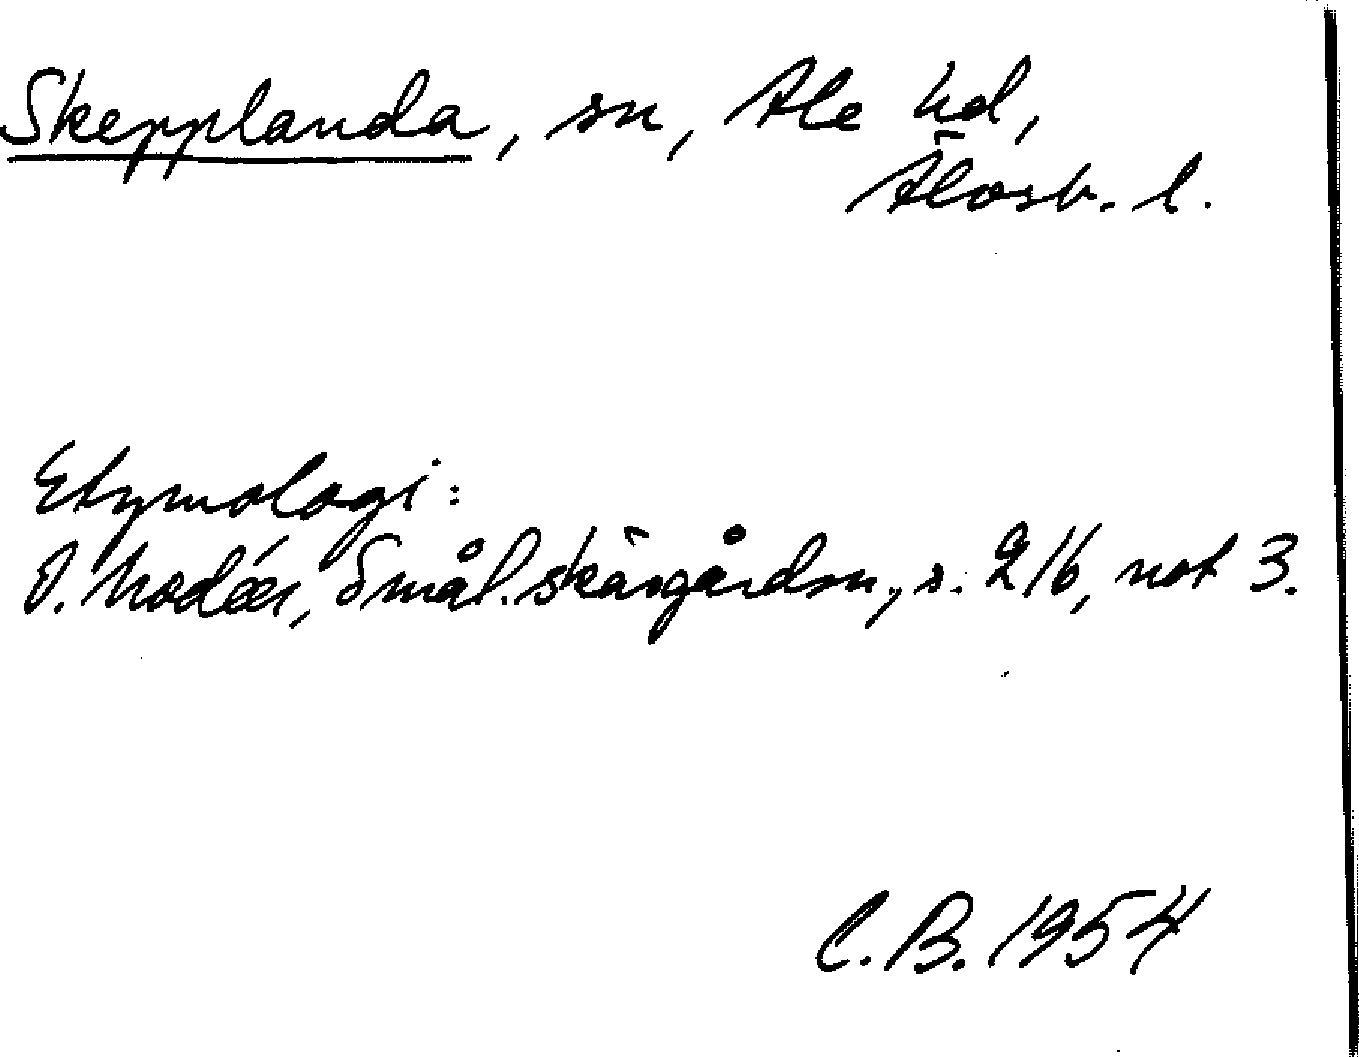 Skepplanda, sn, Ale hd,
Älvsb. l.
Etymologi:
I. Modéer, Smål. skärgårdsn., s. 216, not 3.
C.B. 1954